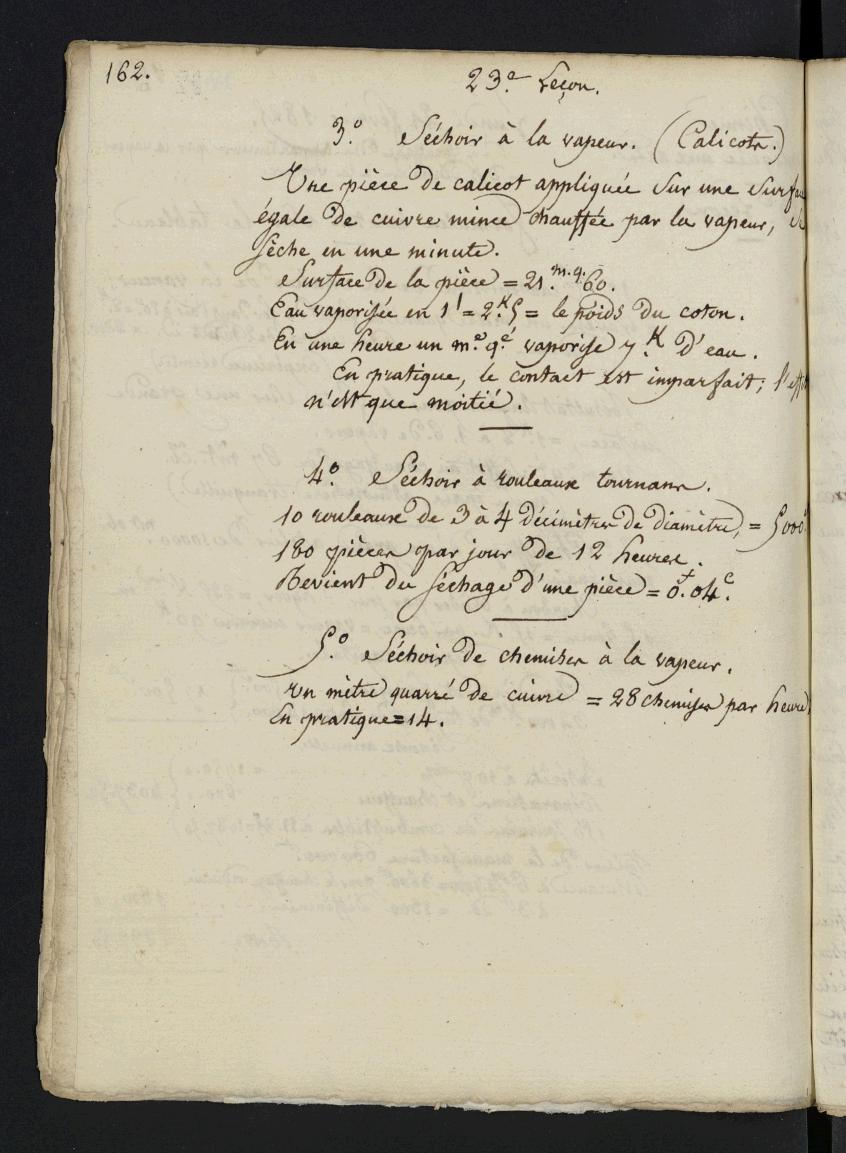 162.
23.e Leçon.
3.o Séchoir à la vapeur. (Calicots.)
Une pièce de calicot appliquée sur une surfa
égale de cuivre mince chauffée par la vapeur, se
sèche en une minute.
Surface de la pièce = 21.m.q.60.
Eau vaporisée en 1' = 2.K5 = le poids du coton.
En une heure un m.e q.é vaporise 7.K d'eau.
En pratique, le contact est imparfait; l'eff
n'est que moitié.
4.o Séchoir à rouleaux tournans.
10 rouleaux de 3 à 4 décimètres de diamètre, = 5000
180 pièces par jour de 12 heures.
Revient du séchage d'une pièce = 0.f04.c
5.o Séchoir de chemises à la vapeur.
Un mètre quarré de cuivre = 28 chemises par heure,
En pratique = 14.